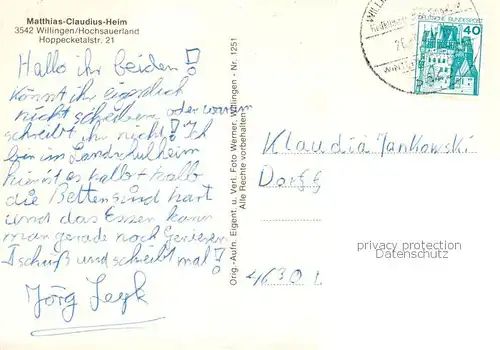 Matthias-Claudius-Heim
3542 Willingen/Hochsauerland
Hoppecketalstr. 21
Hallo ihr beiden!
Könnt ihr eigendlich
nicht schreiben oder warum
schreibt ihr nicht? Ich
bin im Landschulheim
hier ist es halb + halb
die Betten sind hart
und das Essen kann
man gerade noch Geniesen
Tschüß und schreibt mal!
Jörg
Orig.-Aufn. Eigent. u. Verl. Foto Werner, Willingen - Nr. 1251
Alle Rechte vorbehalten
DEUTSCHE BUNDESPOST
40
Klaudia Jankowski
4630
privacy protection
Datenschutz